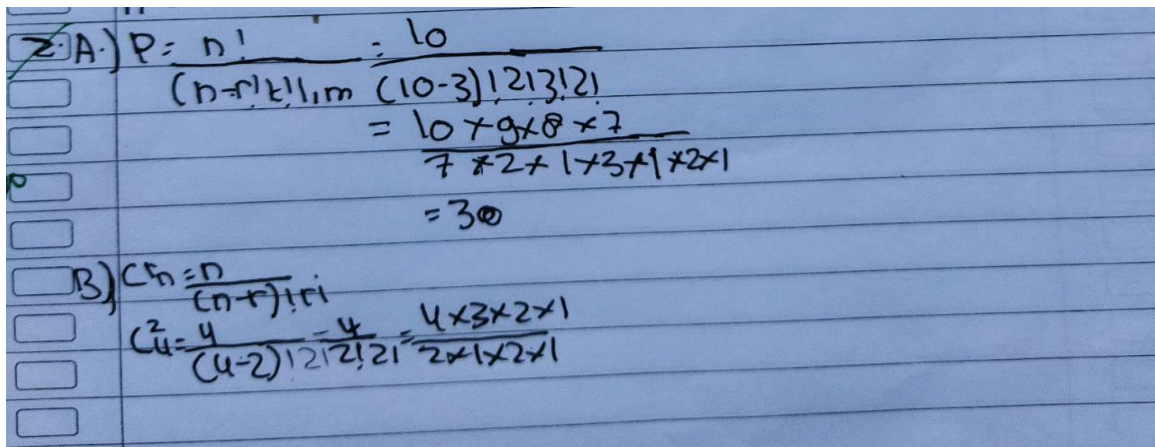 2. A.) P = n! / (n-r)!k!l!m = 10 / (10-3)!2!3!2!
= 10 × 9 × 8 × 7 / 7 × 2 × 1 × 3 × 1 × 2 × 1
= 30
B) C^r_n = n / (n-r)!r!
C^2_4 = 4 / (4-2)!2! = 4 / 2!2! = 4×3×2×1 / 2×1×2×1